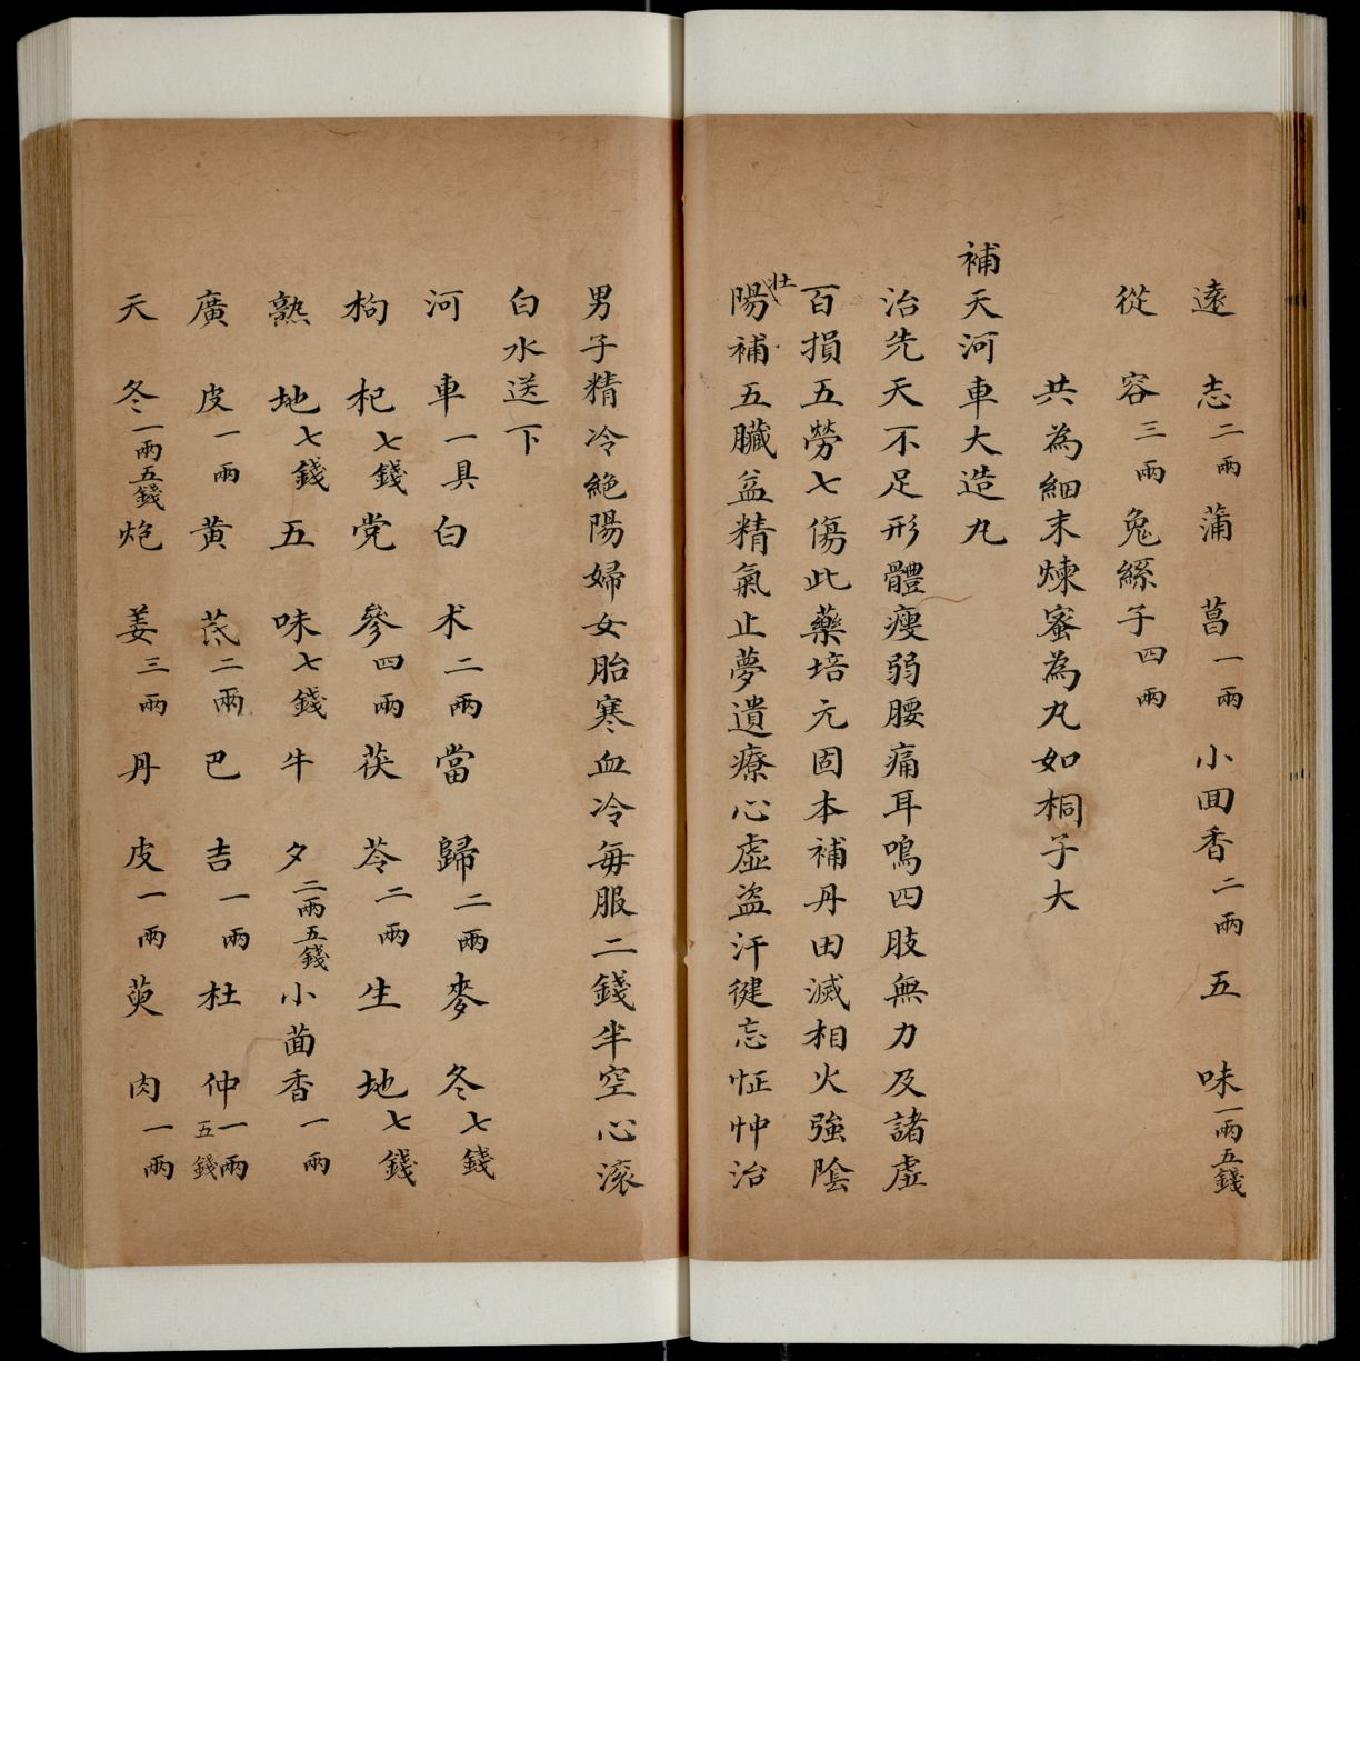 遠志二兩蒲菖一兩小囬香二兩五味一兩五錢
從容三兩兔絲子四兩
共為細末煉蜜為丸如桐子大
補天河車大造丸
治先天不足形體瘦弱腰痛耳鳴四肢無力及諸虛
百損五勞七傷此藥培元固本補丹田滅相火強陰
壯陽補五臟益精氣止夢遺療心虛盜汗健忘怔忡治
男子精冷絶陽婦女胎寒血冷每服二錢半空心滚
白水送下
河車一具白朮二兩當歸二兩麥冬七錢
枸杞七錢党參四兩茯苓二兩生地七錢
熟地七錢五味七錢牛夕二兩五錢小茴香一兩
廣皮一兩黄芪二兩巴吉一兩杜仲一兩五錢
天冬一兩五錢炮姜三兩丹皮一兩萸肉一兩